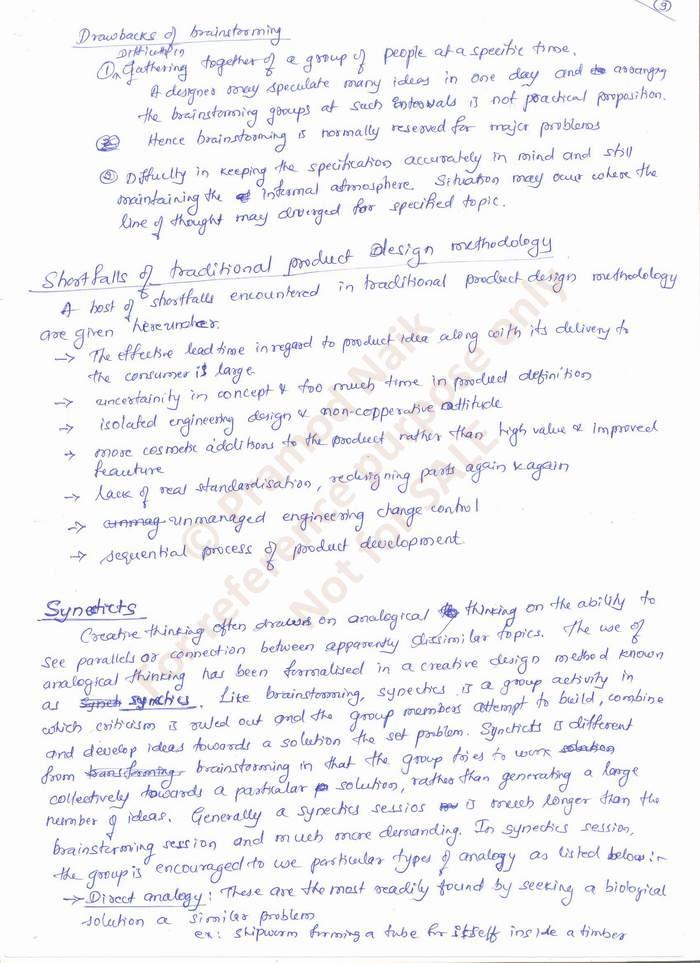 9
Drawbacks of brainstorming
Difficulty in
① Gathering together of a group of people at a specific time.
A designer may speculate many ideas in one day and to arranging
the brainstorming groups at such intervals is not practical proposition.
② Hence brainstorming is normally reserved for major problems
③ Diffculty in keeping the specification accurately in mind and still
maintaining the informal atmosphere. Situation may occur where the
line of thought may diverged for specified topic.
Shortfalls of traditional product Design methodology
A host of shortfalls encountered in traditional product design methodology
are given hereunder.
→ The effective lead time in regard to product idea along with its delivery to
the consumer is large.
→ uncertainity in concept & too much time in product definition
→ isolated engineering design & non-copperative attitude
→ more cosmetic additions to the product rather than high value & improved
feauture
→ lack of real standardisation, redesigning parts again & again
→ unmag unmanaged engineering change control
→ sequential process of product development
Synecticts
Creative thinking often draws on analogical thinking on the ability to
see parallels or connection between apparently dissimilar topics. The use of
analogical thinking has been formalised in a creative design method known
as Synch synectics. Like brainstorming, synectics is a group activity in
which criticism is ruled out and the group members attempt to build, combine
and develop ideas towards a solution the set problem. Synecticts is different
from transforming brainstorming in that the group tries to work solution
collectively towards a particular solution, rather than generating a large
number of ideas. Generally a synectics sessios is much longer than the
brainstorming session and much more demanding. In synectics session,
the group is encouraged to use particular types of analogy as listed below:-
→ Direct analogy: These are the most readily found by seeking a biological
solution a similar problem
ex: shipworm forming a tube for itself inside a timber
© Pramod Naik
For reference purpose only
Not for SALE